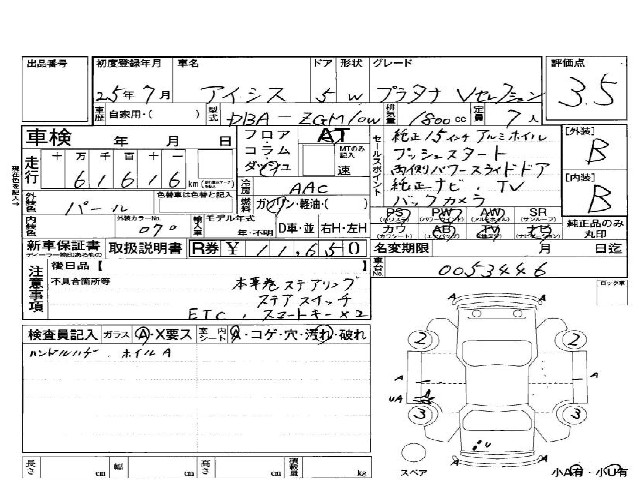 出品番号 初度登録年月 車名 ドア 形状 グレード 評価点
25年7月 アイシス 5 W プラタナ Vセレクション 3.5
車歴 自家用・( ) 型式 DBA-ZGM10W 排気量 1800cc 定員 7人
車検 年 月 日 フロア・コラム・ダッシュ AT MTのみ記入 速
走行 十 万 千 百 十 一
6 1 6 1 6 km
セールスポイント 純正15インチアルミホイル
プッシュスタート
両側パワースライドドア
純正ナビ、TV
バックカメラ
[外装] B
[内装] B
冷房 AAC
外装色 パール 色替車は色替と記入
燃料 ガソリン・軽油・( )
内装色 外装カラーNo. 070 輸入車 モデル年式 年・不明 D車・並 右H・左H
PS PW AW SR
カワ AB TV ナビ
純正品のみ丸印
新車保証書 取扱説明書 R券 ¥ 11,650
ディーラー捺印あるもの
名変期限 月 日迄
車台No. 0053446
注意事項 後日品【 】
不具合箇所等
本革巻ステアリング
ステアスイッチ
ETC、スマートキー×2
ロック車
検査員記入 ガラス A・X要ス 室内 シート ・コゲ・穴・汚れ・破れ
ハンドルハゲ、ホイルA
A
2 2
A A
UA
3 3
U
A
スペア 小A有・小U有
長さ cm 幅 cm 高さ cm 積載量 kg
現在色を記入→